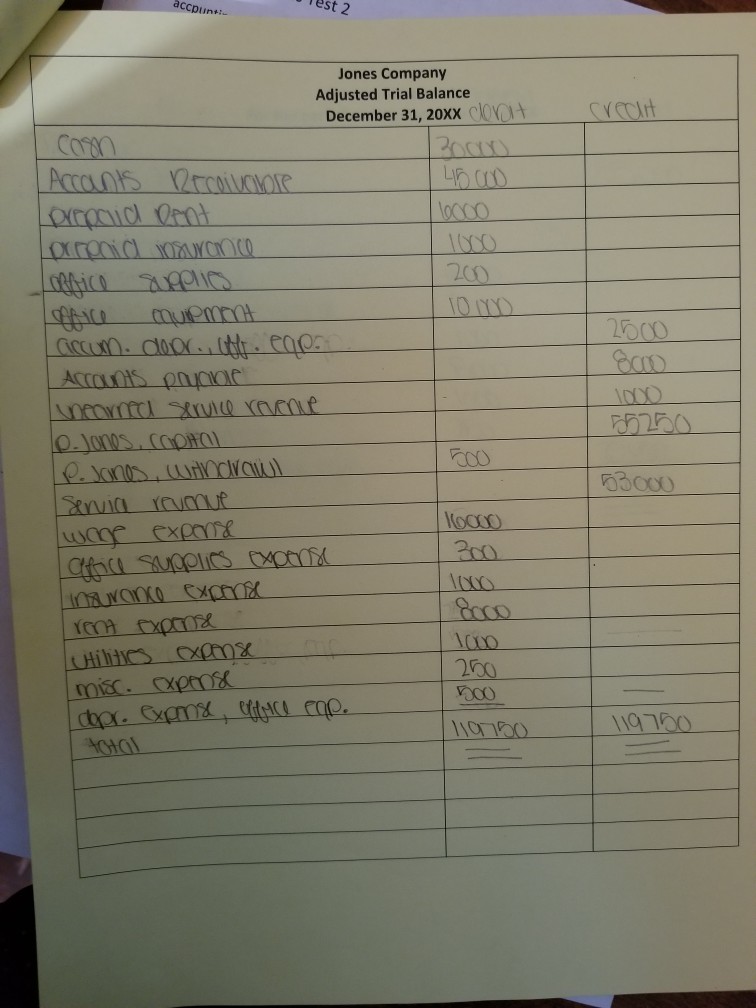 accounti
Test 2
Jones Company
Adjusted Trial Balance
December 31, 20XX debit credit
Cash 30000
Accounts Receivable 45000
prepaid Rent 6000
prepaid insurance 1000
office supplies 200
office equipment 10000
accum. depr., off. eqp. 2500
Accounts payable 8000
unearned service revenue 1000
P. Jones, capital 55250
P. Jones, withdrawl 500
Service revenue 53000
wage expense 16000
office supplies expense 300
insurance expense 1000
rent expense 8000
utilities expense 1000
misc. expense 250
depr. expense, office eqp. 500
total 119750 119750